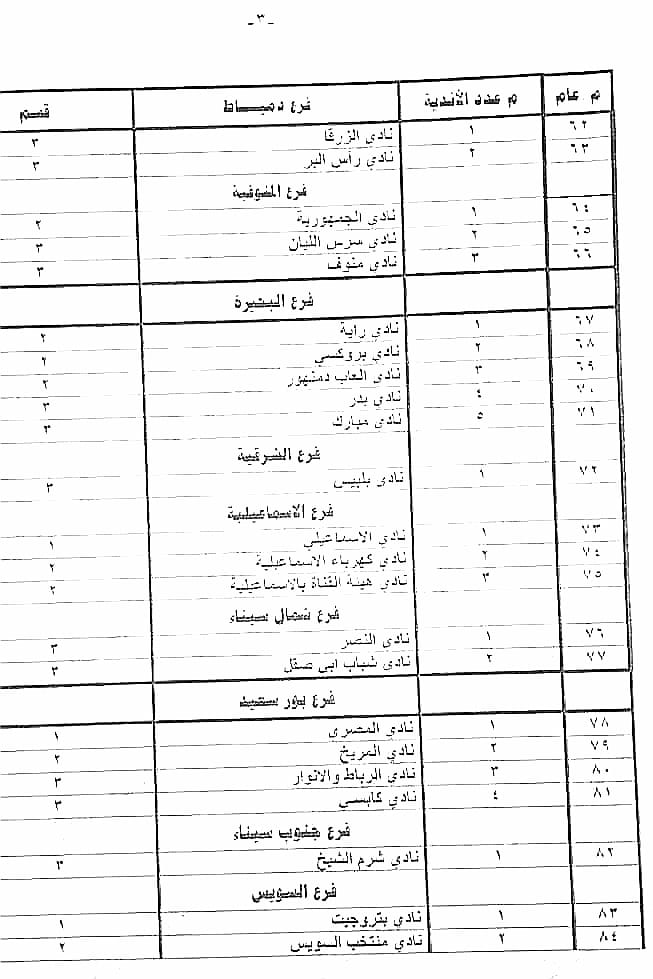 - ٣ -
م عام م عدد الأندية فرع دمياط قسم
٦٢ ١ نادي الزرقا ٣
٦٣ ٢ نادي رأس البر ٣
فرع المنوفية
٦٤ ١ نادي الجمهورية ٢
٦٥ ٢ نادي سرس الليان ٣
٦٦ ٣ نادي منوف ٣
فرع البحيرة
٦٧ ١ نادي راية ٢
٦٨ ٢ نادي بروكسي ٢
٦٩ ٣ نادي العاب دمنهور ٢
٧٠ ٤ نادي بدر ٣
٧١ ٥ نادي مبارك ٣
فرع الشرقية
٧٢ ١ نادي بلبيس ٣
فرع الاسماعيلية
٧٣ ١ نادي الاسماعيلي ١
٧٤ ٢ نادي كهرباء الاسماعيلية ٢
٧٥ ٣ نادي هيئة القناة بالاسماعيلية ٢
فرع شمال سيناء
٧٦ ١ نادي النصر ٣
٧٧ ٢ نادي شباب ابى صقل ٣
فرع بور سعيد
٧٨ ١ نادي المصرى ١
٧٩ ٢ نادي المريخ ٢
٨٠ ٣ نادي الرباط والانوار ٣
٨١ ٤ نادي كابسي ٣
فرع جنوب سيناء
٨٢ ١ نادي شرم الشيخ ٣
فرع السويس
٨٣ ١ نادي بتروجيت ١
٨٤ ٢ نادي منتخب السويس ٢